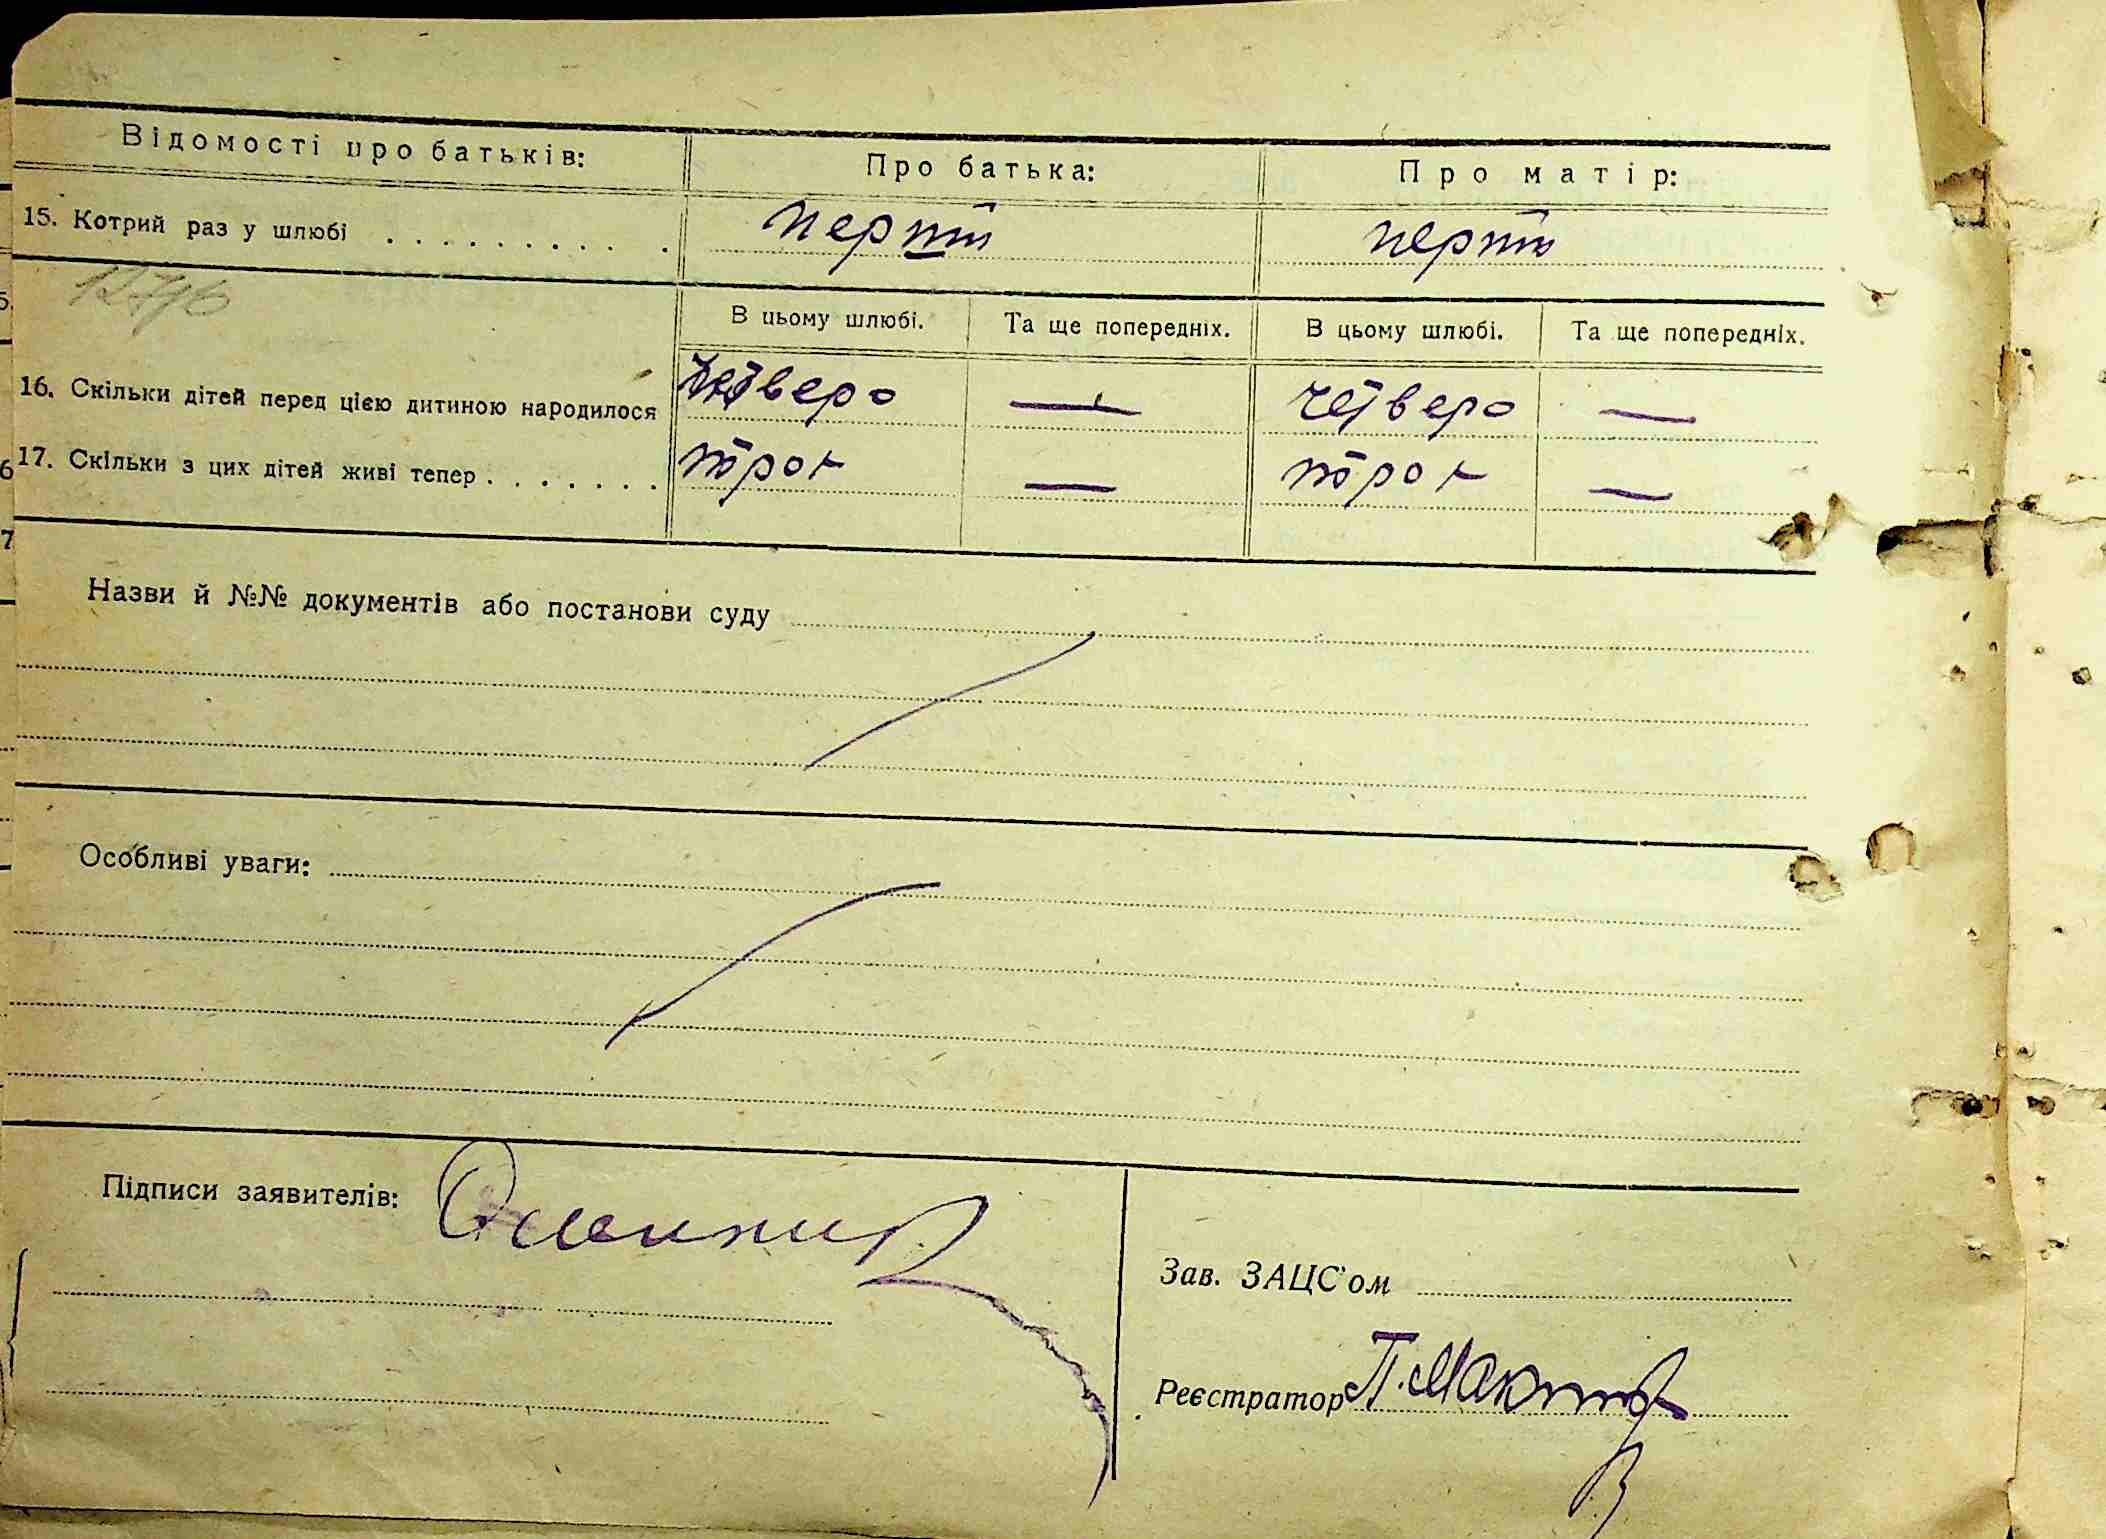 Відомості про батьків: Про батька: Про матір:
15. Котрий раз у шлюбі . . . . . . . . . . перший перший
В цьому шлюбі. Та ще попередніх. В цьому шлюбі. Та ще попередніх.
16. Скільки дітей перед цією дитиною народилося четверо — четверо —
17. Скільки з цих дітей живі тепер . . . . . . . трох — трох —
Назви й №№ документів або постанови суду
Особливі уваги:
Підписи заявителів:
Зав. ЗАЦС'ом
Реєстратор